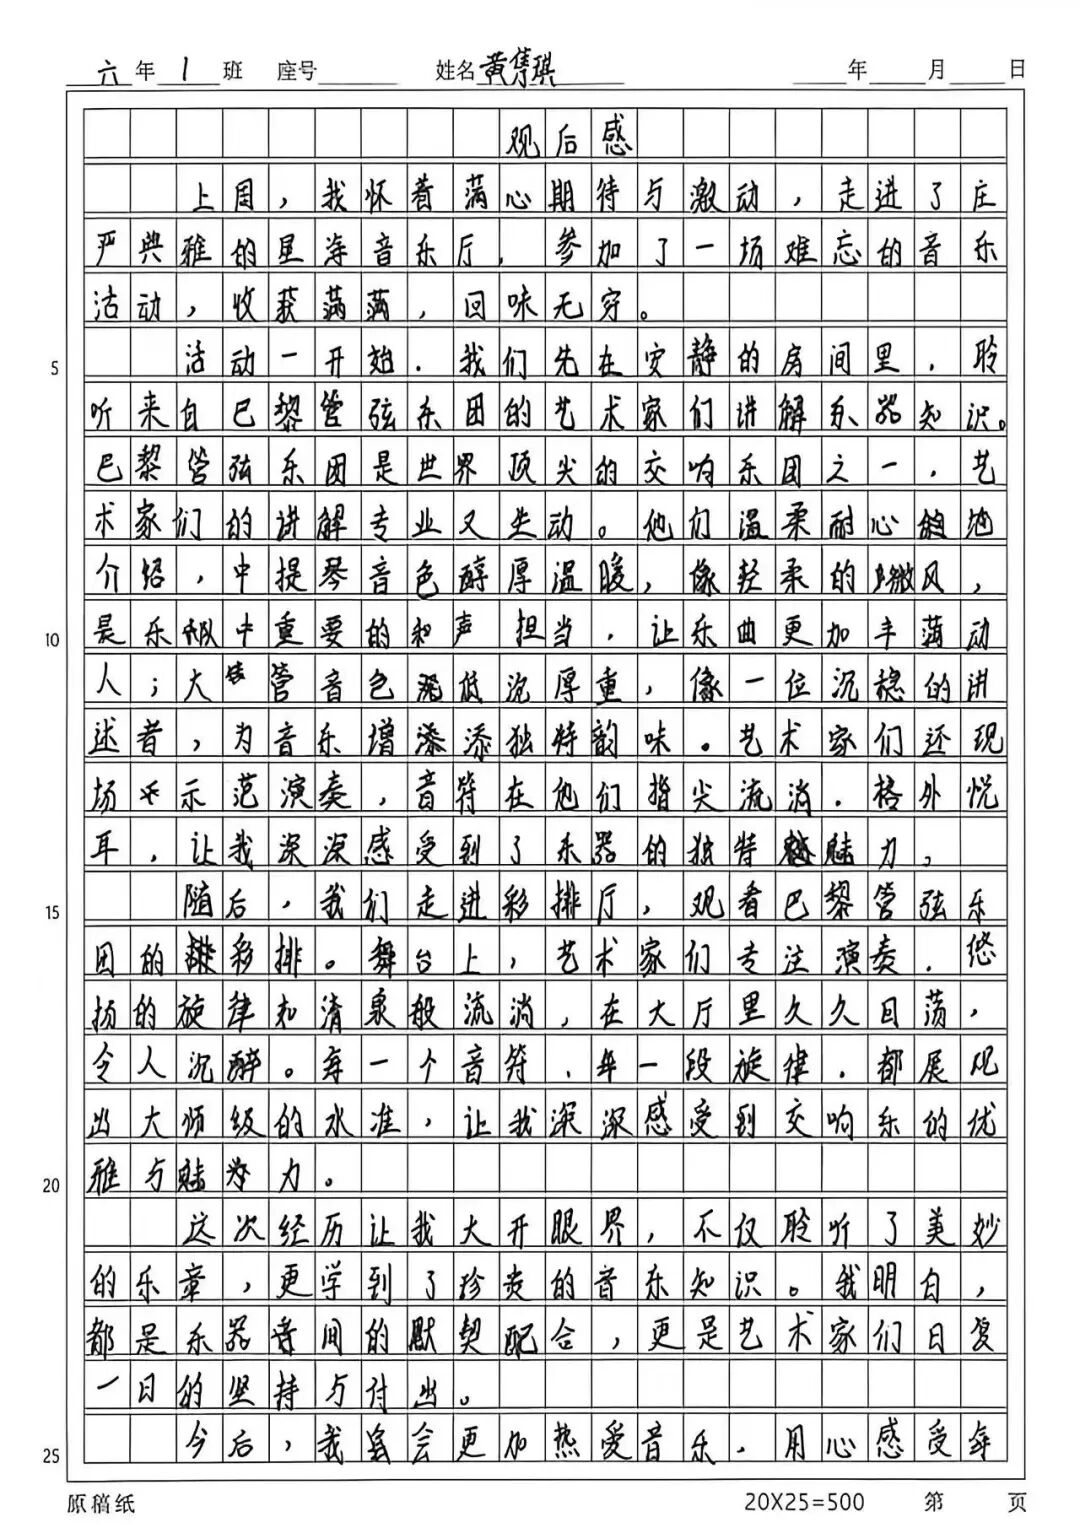 六年1班 座号 姓名黄隽琪 年 月 日
观后感
上周，我怀着满心期待与激动，走进了庄
严典雅的星海音乐厅，参加了一场难忘的音乐
活动，收获满满，回味无穷。
5 活动一开始，我们先在安静的房间里，聆
听来自巴黎管弦乐团的艺术家们讲解乐器知识。
巴黎管弦乐团是世界顶尖的交响乐团之一，艺
术家们的讲解专业又生动。他们温柔耐心地
介绍，中提琴音色醇厚温暖，像轻柔的微风，
10 是乐队中重要的和声担当，让乐曲更加丰满动
人；大管音色低沉厚重，像一位沉稳的讲
述者，为音乐增添独特韵味。艺术家们还现
场示范演奏，音符在他们指尖流淌，格外悦
耳，让我深深感受到了乐器的独特魅力。
15 随后，我们走进彩排厅，观看巴黎管弦乐
团的彩排。舞台上，艺术家们专注演奏，悠
扬的旋律如清泉般流淌，在大厅里久久回荡，
令人沉醉。每一个音符、每一段旋律，都展现
出大师级的水准，让我深深感受到交响乐的优
20 雅与魅力。
这次经历让我大开眼界，不仅聆听了美妙
的乐章，更学到了珍贵的音乐知识。我明白，
都是乐器间的默契配合，更是艺术家们日复
一日的坚持与付出。
25 今后，我会更加热爱音乐，用心感受每
原稿纸 20X25=500 第 页